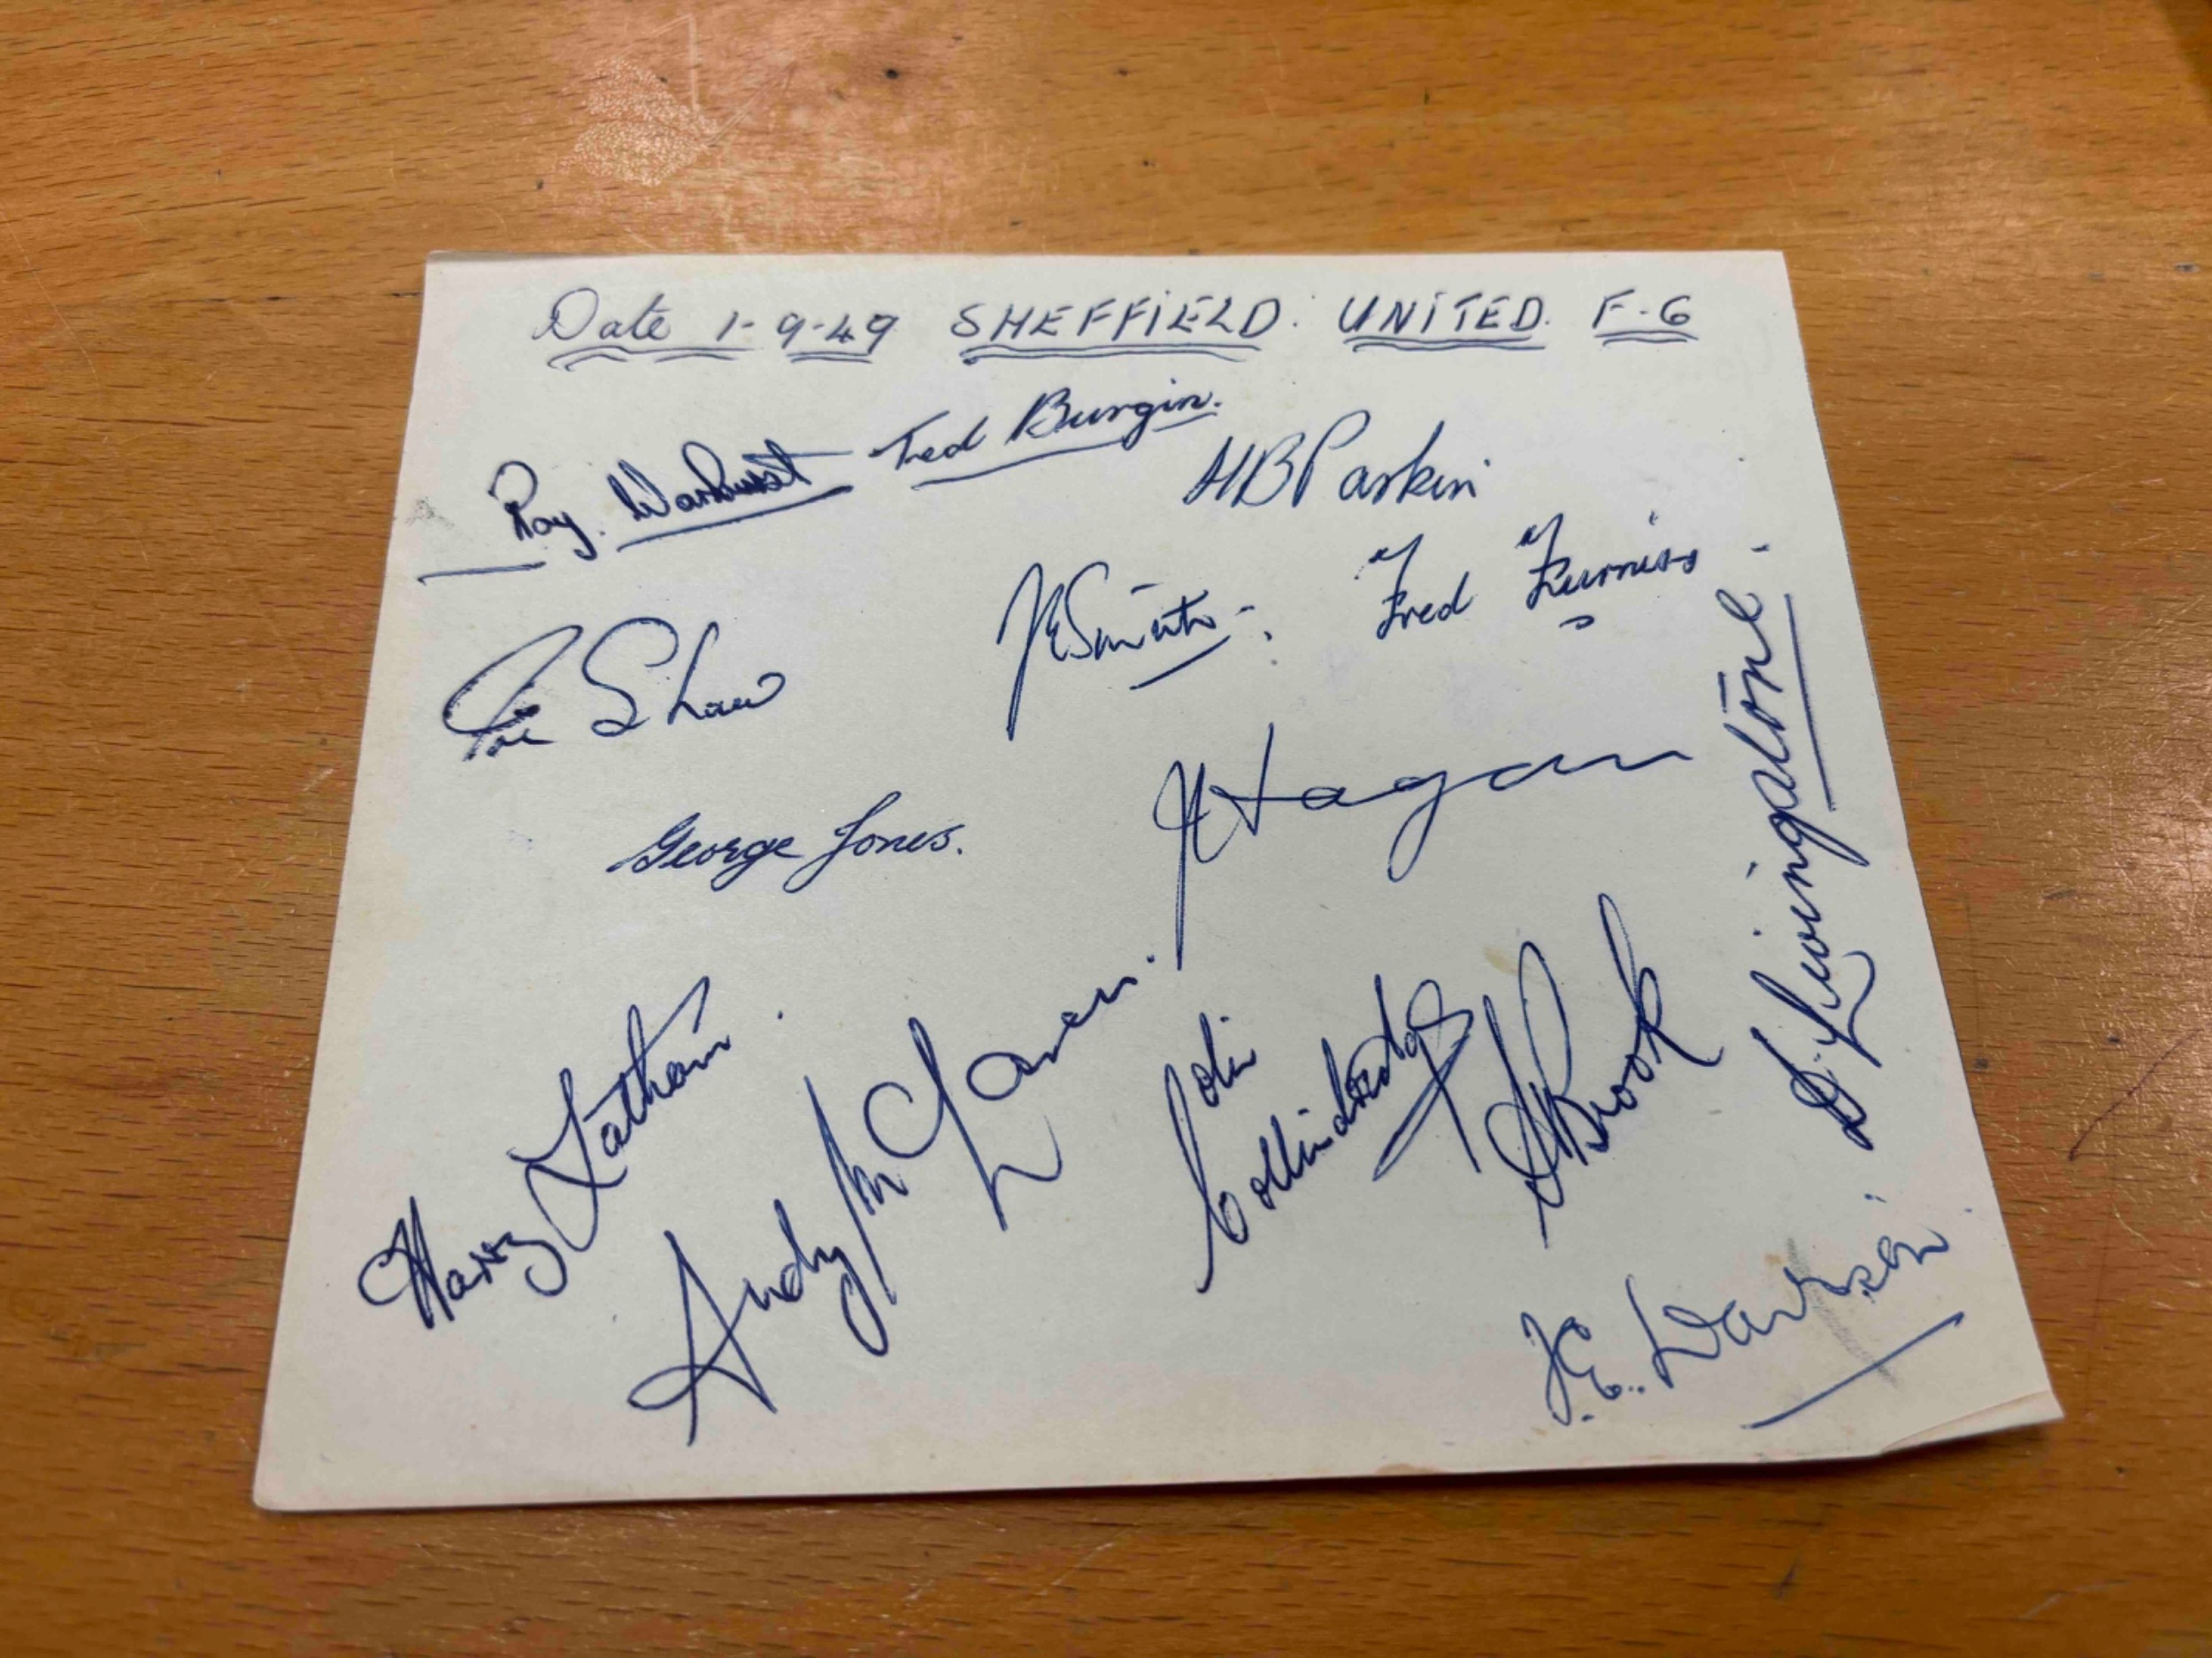 Date 1-9-49 SHEFFIELD. UNITED. F-C
Roy. Warhurst
Ted Burgin.
HB Parkin
Joe Shaw
Smith
Fred Furniss
George Jones.
J Hagan
D. Livingstone
Harry Latham
Andy McLaren.
Colin Collindridge
Brook